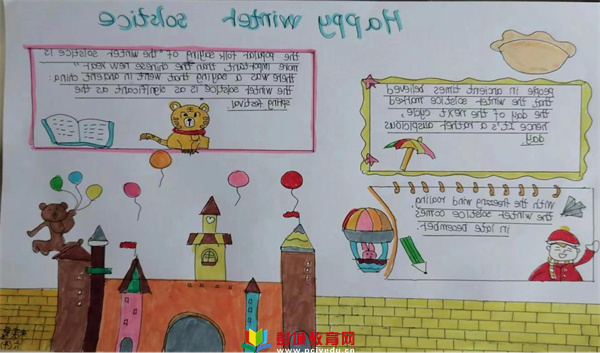 Happy winter solstice
the popular folk saying of "the winter solstice is
more important than the chinese new year"
there was a saying that went in ancient china:
the winter solstice is as significant as the
spring festival.
people in ancient times believed
that the winter solstice marked
the day of the next cycle,
hence it's a rather auspicious
day.
with the freezing wind railing,
the winter solstice comes
in late December.
教育网
www.pcivedu.cn